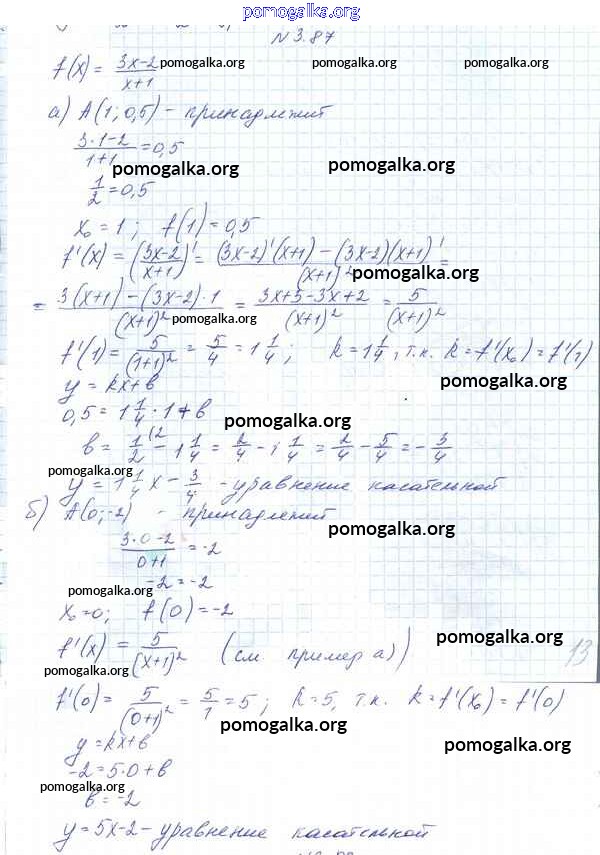 pomogalka.org
N 3.87
f(x) = (3x-2)/(x+1) pomogalka.org pomogalka.org
а) A(1; 0,5) - принадлежит
(3·1-2)/(1+1) = 0,5
pomogalka.org pomogalka.org
1/2 = 0,5
x₀ = 1; f(1) = 0,5
f'(x) = ((3x-2)/(x+1))' = ((3x-2)'(x+1) - (3x-2)(x+1)')/(x+1)² =
pomogalka.org
= (3(x+1) - (3x-2)·1)/(x+1)² = (3x+5-3x+2)/(x+1)² = 5/(x+1)²
pomogalka.org
f'(1) = 5/(1+1)² = 5/4 = 1 1/4; k = 1 1/4, т.к. k = f'(x₀) = f'(1)
pomogalka.org
y = kx+b
0,5 = 1 1/4 · 1 + b
pomogalka.org
b = 1/2 (2 - 1 1/4 = 2/4 - 1 1/4 = 2/4 - 5/4 = - 3/4
pomogalka.org
y = 1 1/4 x - 3/4 - уравнение касательной
б) A(0; -2) - принадлежит
pomogalka.org
(3·0-2)/(0+1) = -2
-2 = -2
pomogalka.org
x₀=0; f(0) = -2
f'(x) = 5/(x+1)² (см пример а))
pomogalka.org 13
pomogalka.org
f'(0) = 5/(0+1)² = 5/1 = 5; k = 5, т.к. k = f'(x₀) = f'(0)
pomogalka.org
y = kx+b
pomogalka.org
-2 = 5·0 + b
pomogalka.org
b = -2
y = 5x-2 - уравнение касательной